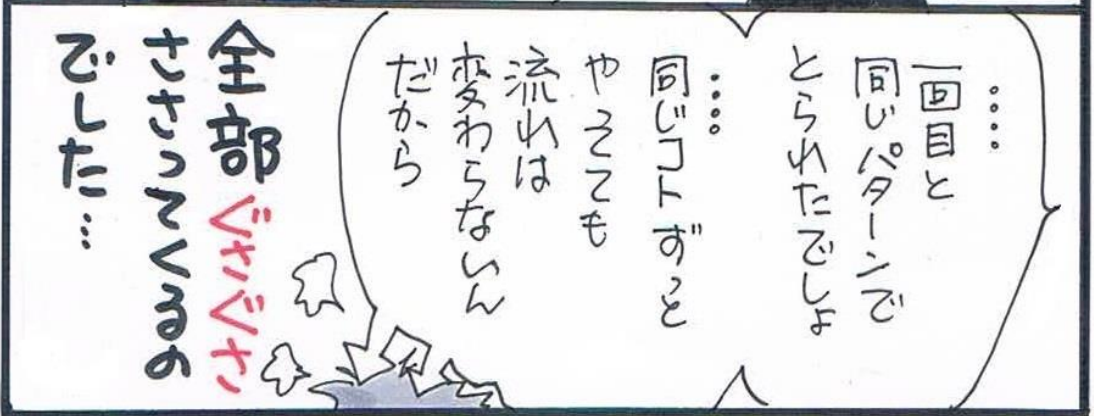 ‥‥
一回目と
同じパターンで
とられたでしょ
‥‥
同じコトずっと
やってても
流れは
変わらないん
だから
全部ぐさぐさ
ささってくるの
でした…